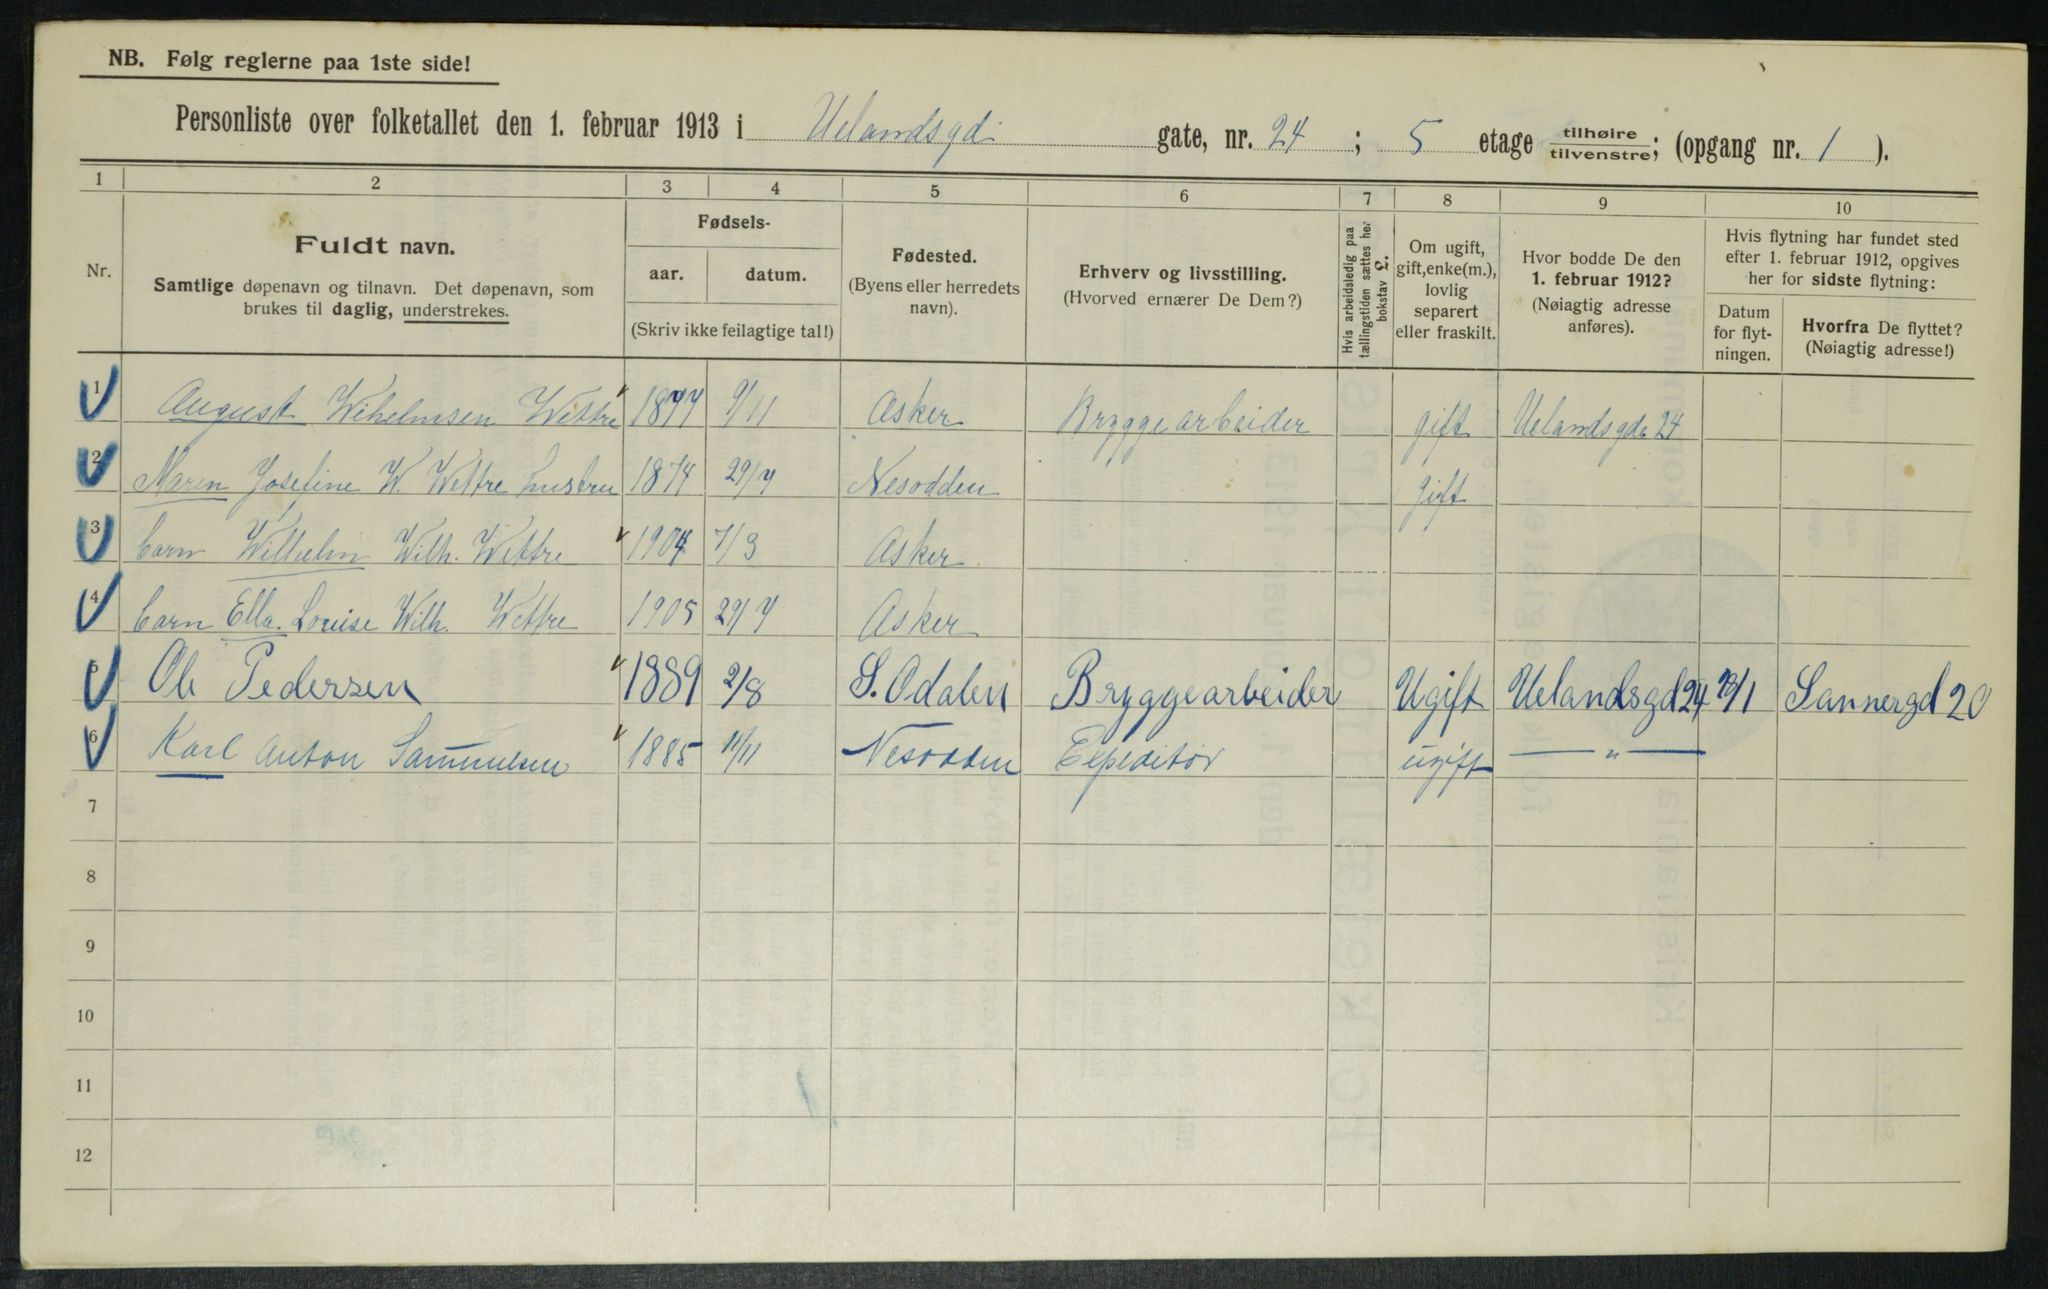 NB. Følg reglerne paa 1ste side!
Personliste over folketallet den 1. februar 1913 i Uelandsgd. gate, nr. 24 ; 5 etage tilhøire tilvenstre; (opgang nr. 1 ).
1 2 3 4 5 6 7 8 9 10
Nr.
Fuldt navn.
Samtlige døpenavn og tilnavn. Det døpenavn, som
brukes til daglig, understrekes.
Fødsels-
aar. datum.
(Skriv ikke feilagtige tal!)
Fødested.
(Byens eller herredets
navn).
Erhverv og livsstilling.
(Hvorved ernærer De Dem?)
Hvis arbeidsledig paa
tællingstiden sættes her
bokstav £.
Om ugift,
gift, enke(m.),
lovlig
separert
eller fraskilt.
Hvor bodde De den
1. februar 1912?
(Nøiagtig adresse
anføres).
Hvis flytning har fundet sted
efter 1. februar 1912, opgives
her for sidste flytning:
Datum
for flyt-
ningen.
Hvorfra De flyttet?
(Nøiagtig adresse!)
1 August Wihelmsen Wettre 1877 9/11 Asker Bryggearbeider gift Uelandsgda 24
2 Maren Josefine W. Wettre hustru 1874 29/7 Nesodden gift
3 barn Wilhelm Wilh. Wettre 1904 7/3 Asker
4 barn Ella. Louise Wilh. Wettre 1905 29/7 Asker
5 Ole Pedersen 1889 2/8 S. Odalen Bryggearbeider Ugift Uelandsgd 24 28/1 Sannergd 20
6 Karl Anton Sammuelsen 1885 11/11 Nesodden Expeditør ugift — „ —
7
8
9
10
11
12